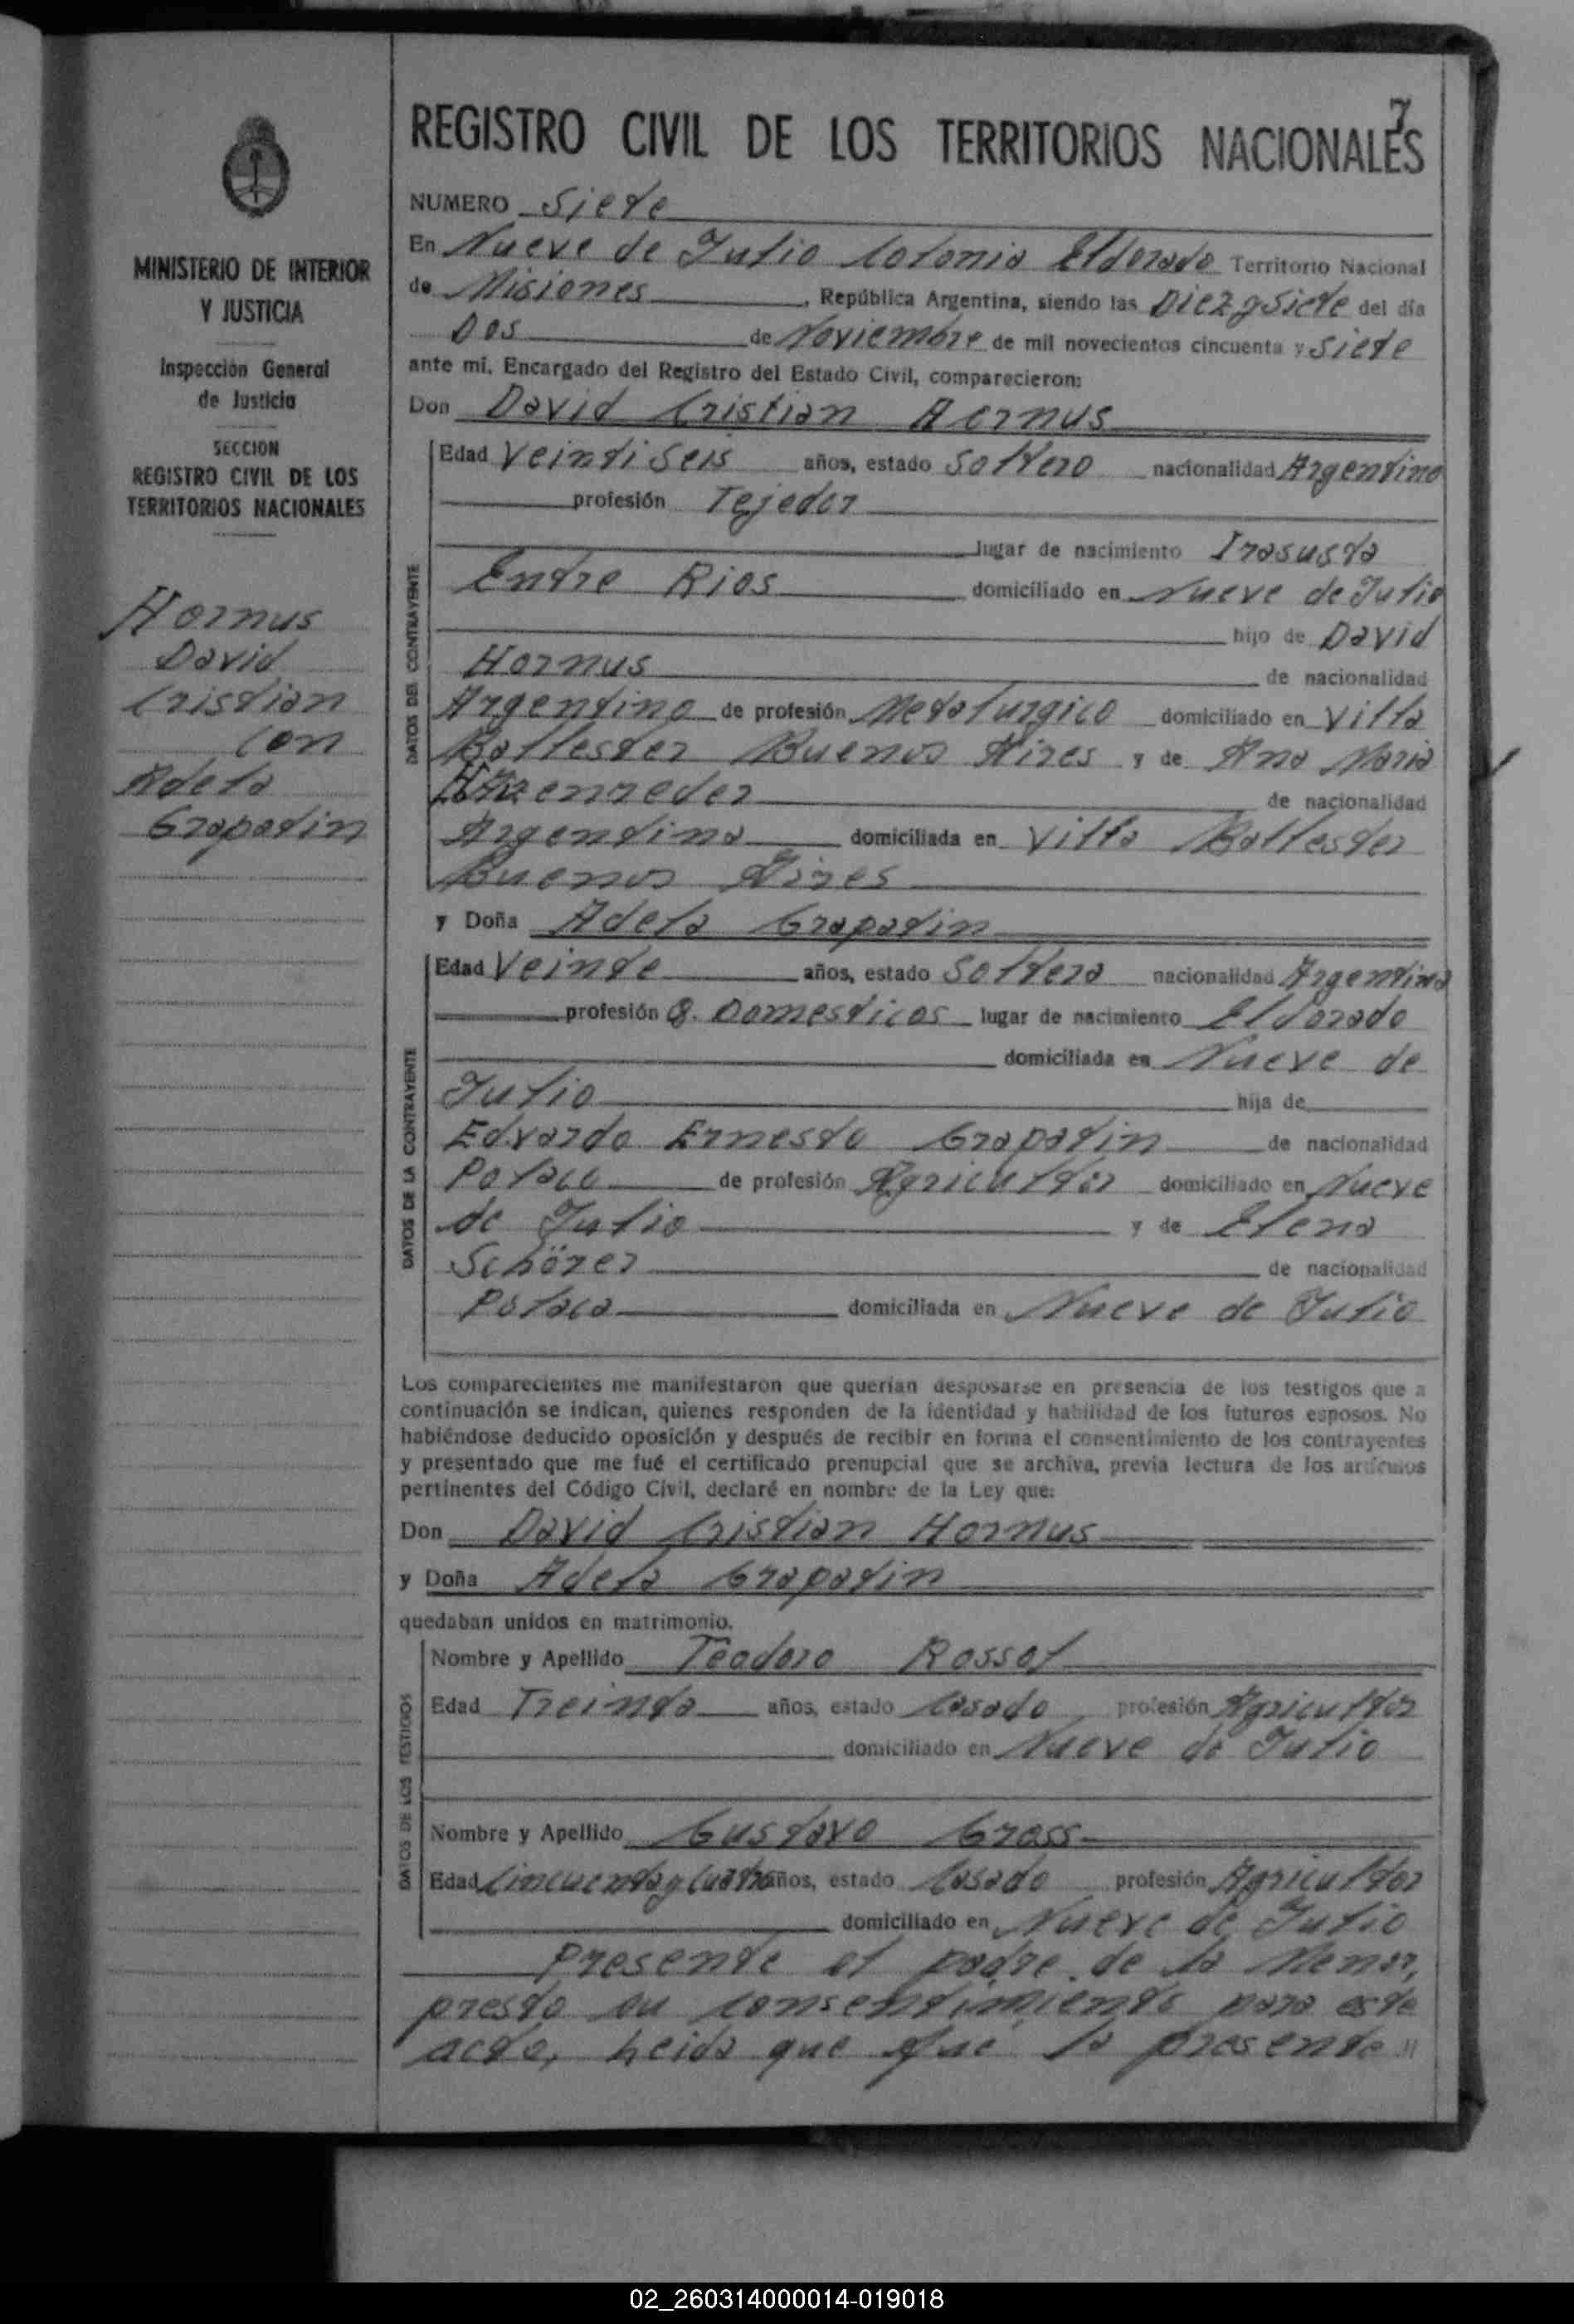 7
REGISTRO CIVIL DE LOS TERRITORIOS NACIONALES
MINISTERIO DE INTERIOR
Y JUSTICIA
Inspección General
de Justicia
SECCION
REGISTRO CIVIL DE LOS
TERRITORIOS NACIONALES
Hornus
David
Cristian
Con
Adela
Grapatin
NUMERO Siete
En Nueve de Julio Colonia Eldorado Territorio Nacional
de Misiones, República Argentina, siendo las Diez y Siete del día
Dos de Noviembre de mil novecientos cincuenta y Siete
ante mi, Encargado del Registro del Estado Civil, comparecieron:
Don David Cristian Hornus
DATOS DEL CONTRAYENTE
Edad Veinti Seis años, estado Soltero nacionalidad Argentino
profesión Tejedor
lugar de nacimiento Irasusta
Entre Rios domiciliado en Nueve de Julio
hijo de David
Hornus de nacionalidad
Argentino de profesión Metalurgico domiciliado en Villa
Ballester Buenos Aires y de Ana Maria
de nacionalidad
Argentina domiciliada en Villa Ballester
Buenos Aires
y Doña Adela Grapatin
DATOS DE LA CONTRAYENTE
Edad Veinte años, estado Soltera nacionalidad Argentina
profesión Q. Domesticos lugar de nacimiento Eldorado
domiciliada en Nueve de
Julio hija de
Edvardo Ernesto Grapatin de nacionalidad
Polaco de profesión Agricultor domiciliado en Nueve
de Julio y de Elena
Schörer de nacionalidad
Polaca domiciliada en Nueve de Julio
Los comparecientes me manifestaron que querían desposarse en presencia de los testigos que a
continuación se indican, quienes responden de la identidad y habilidad de los futuros esposos. No
habiéndose deducido oposición y después de recibir en forma el consentimiento de los contrayentes
y presentado que me fué el certificado prenupcial que se archiva, previa lectura de los artículos
pertinentes del Código Civil, declaré en nombre de la Ley que:
Don David Cristian Hornus
y Doña Adela Grapatin
quedaban unidos en matrimonio.
DATOS DE LOS TESTIGOS
Nombre y Apellido Teodoro Rossol
Edad Treinta años, estado Casado profesión Agricultor
domiciliado en Nueve de Julio
Nombre y Apellido Gustavo Gross
Edad Cincuenta y Cuatro años, estado Casado profesión Agricultor
domiciliado en Nueve de Julio
Presente el padre de la Menor,
presto su consentimiento para este
acto, Leida que fue la presente "
02_260314000014-019018